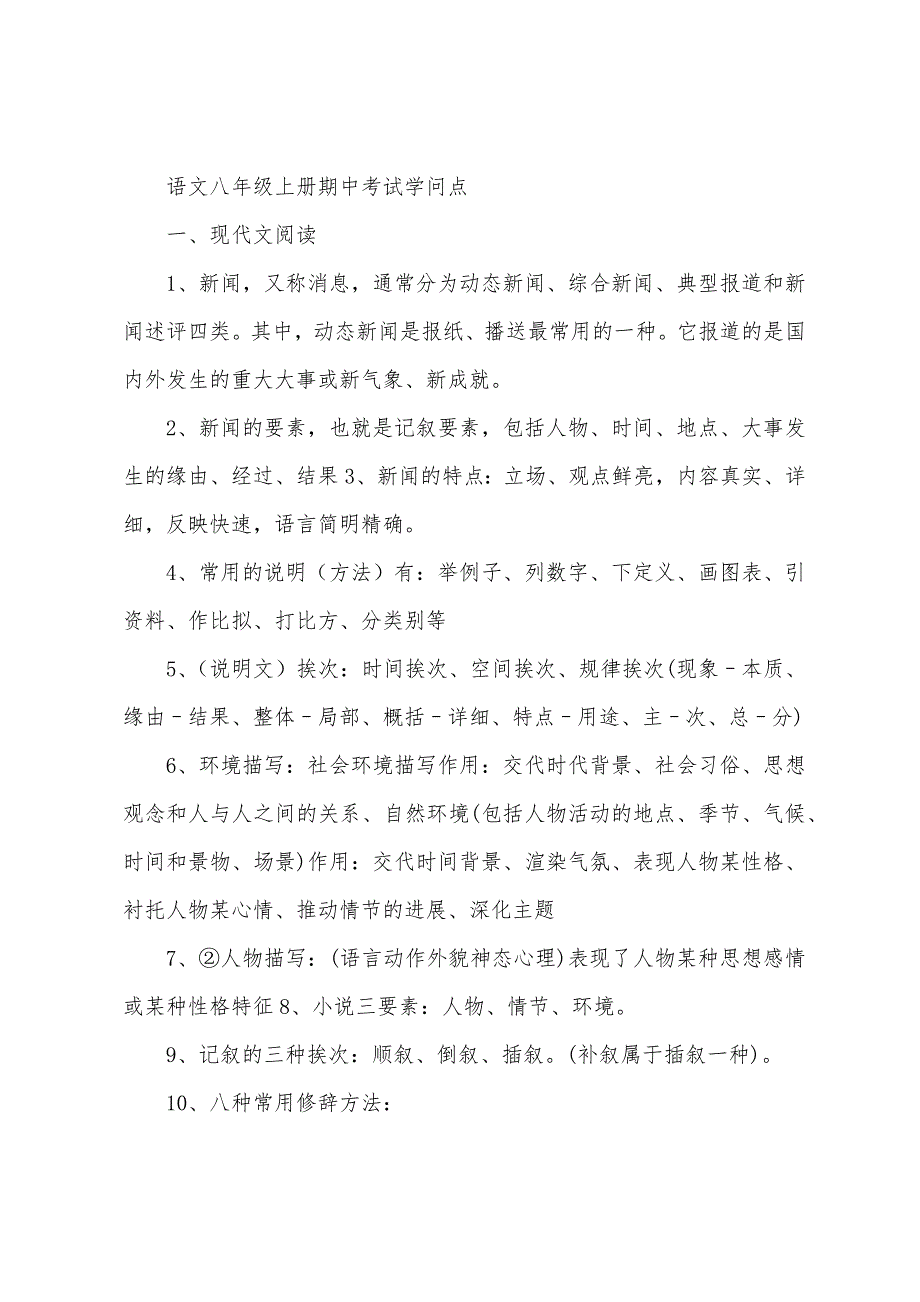 语文八年级上册期中考试学问点
一、现代文阅读
1、新闻，又称消息，通常分为动态新闻、综合新闻、典型报道和新
闻述评四类。其中，动态新闻是报纸、播送最常用的一种。它报道的是国
内外发生的重大大事或新气象、新成就。
2、新闻的要素，也就是记叙要素，包括人物、时间、地点、大事发
生的缘由、经过、结果 3、新闻的特点：立场、观点鲜亮，内容真实、详
细，反映快速，语言简明精确。
4、常用的说明（方法）有：举例子、列数字、下定义、画图表、引
资料、作比拟、打比方、分类别等
5、（说明文）挨次：时间挨次、空间挨次、规律挨次(现象–本质、
缘由–结果、整体–局部、概括–详细、特点–用途、主–次、总–分)
6、环境描写：社会环境描写作用：交代时代背景、社会习俗、思想
观念和人与人之间的关系、自然环境(包括人物活动的地点、季节、气候、
时间和景物、场景)作用：交代时间背景、渲染气氛、表现人物某性格、
衬托人物某心情、推动情节的进展、深化主题
7、②人物描写：(语言动作外貌神态心理)表现了人物某种思想感情
或某种性格特征 8、小说三要素：人物、情节、环境。
9、记叙的三种挨次：顺叙、倒叙、插叙。(补叙属于插叙一种)。
10、八种常用修辞方法：